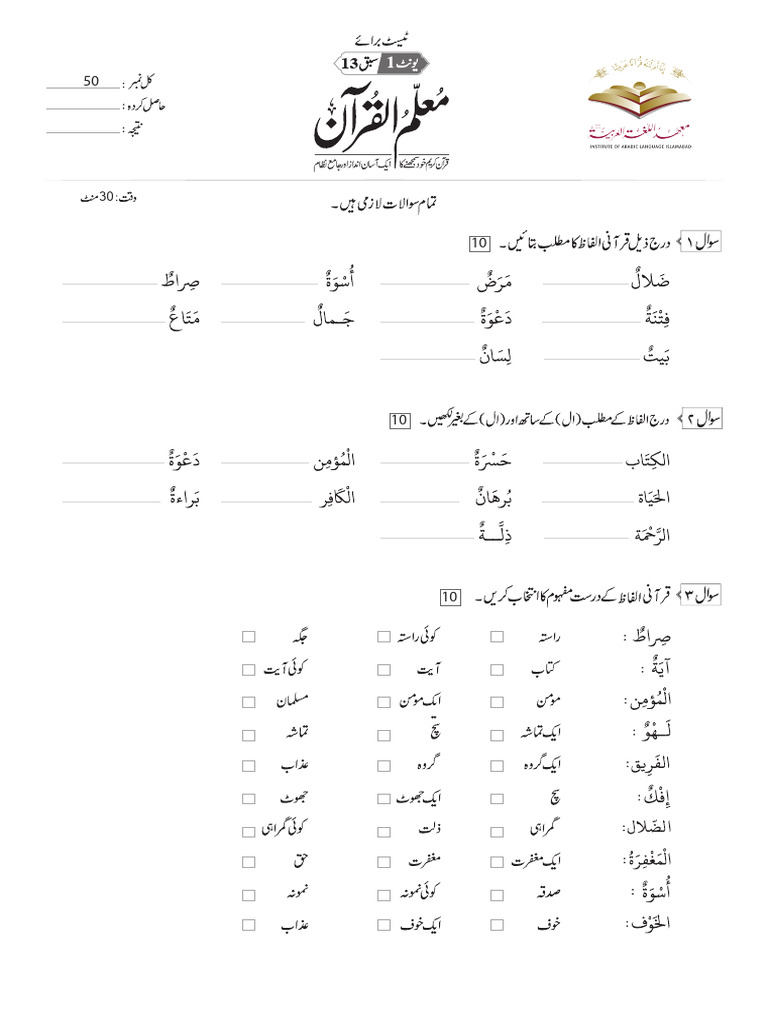 ٹیسٹ برائے
یونٹ 1 سبق 13
معلّمُ القُرآن
قرآن کریم خود سمجھنے کا ایک آسان انداز اور جامع نظام
معهد اللغة العربية
INSTITUTE OF ARABIC LANGUAGE ISLAMABAD
کل نمبر : 50
حاصل کردہ :
نتیجہ :
تمام سوالات لازمی ہیں۔
وقت: 30 منٹ
سوال ۱ ﴾ درج ذیل قرآنی الفاظ کا مطلب بتائیں۔ 10
ضَلالٌ مَرَضٌ أُسْوَةٌ صِراطٌ
فِتْنَةٌ دَعْوَةٌ جَـمالٌ مَتَاعٌ
بَيتٌ لِسَانٌ
سوال ۲ ﴾ درج الفاظ کے مطلب (ال) کے ساتھ اور (ال) کے بغیر لکھیں۔ 10
الكِتَاب حَسْرَةٌ الْمُؤمِن دَعْوَةٌ
الحَيَاة بُرهَانٌ الْكَافِر بَراءةٌ
الرَّحْمَة ذِلَّــةٌ
سوال ۳ ﴾ قرآنی الفاظ کے درست مفہوم کا انتخاب کریں۔ 10
صِراطٌ : راستہ کوئی راستہ جگہ
آيَةٌ : کتاب آیت کوئی آیت
الْمُؤمِن: مومن ایک مومن مسلمان
لَـهْوٌ : ایک تماشہ سچ تماشہ
الفَرِيق: ایک گروہ گروہ عذاب
إِفْكٌ: سچ ایک جھوٹ جھوٹ
الضّلال: گمراہی ذلت کوئی گمراہی
الْمَغْفِرَةُ: ایک مغفرت مغفرت حق
أُسْوَةٌ : صدقہ کوئی نمونہ نمونہ
الخَوْف: خوف ایک خوف عذاب